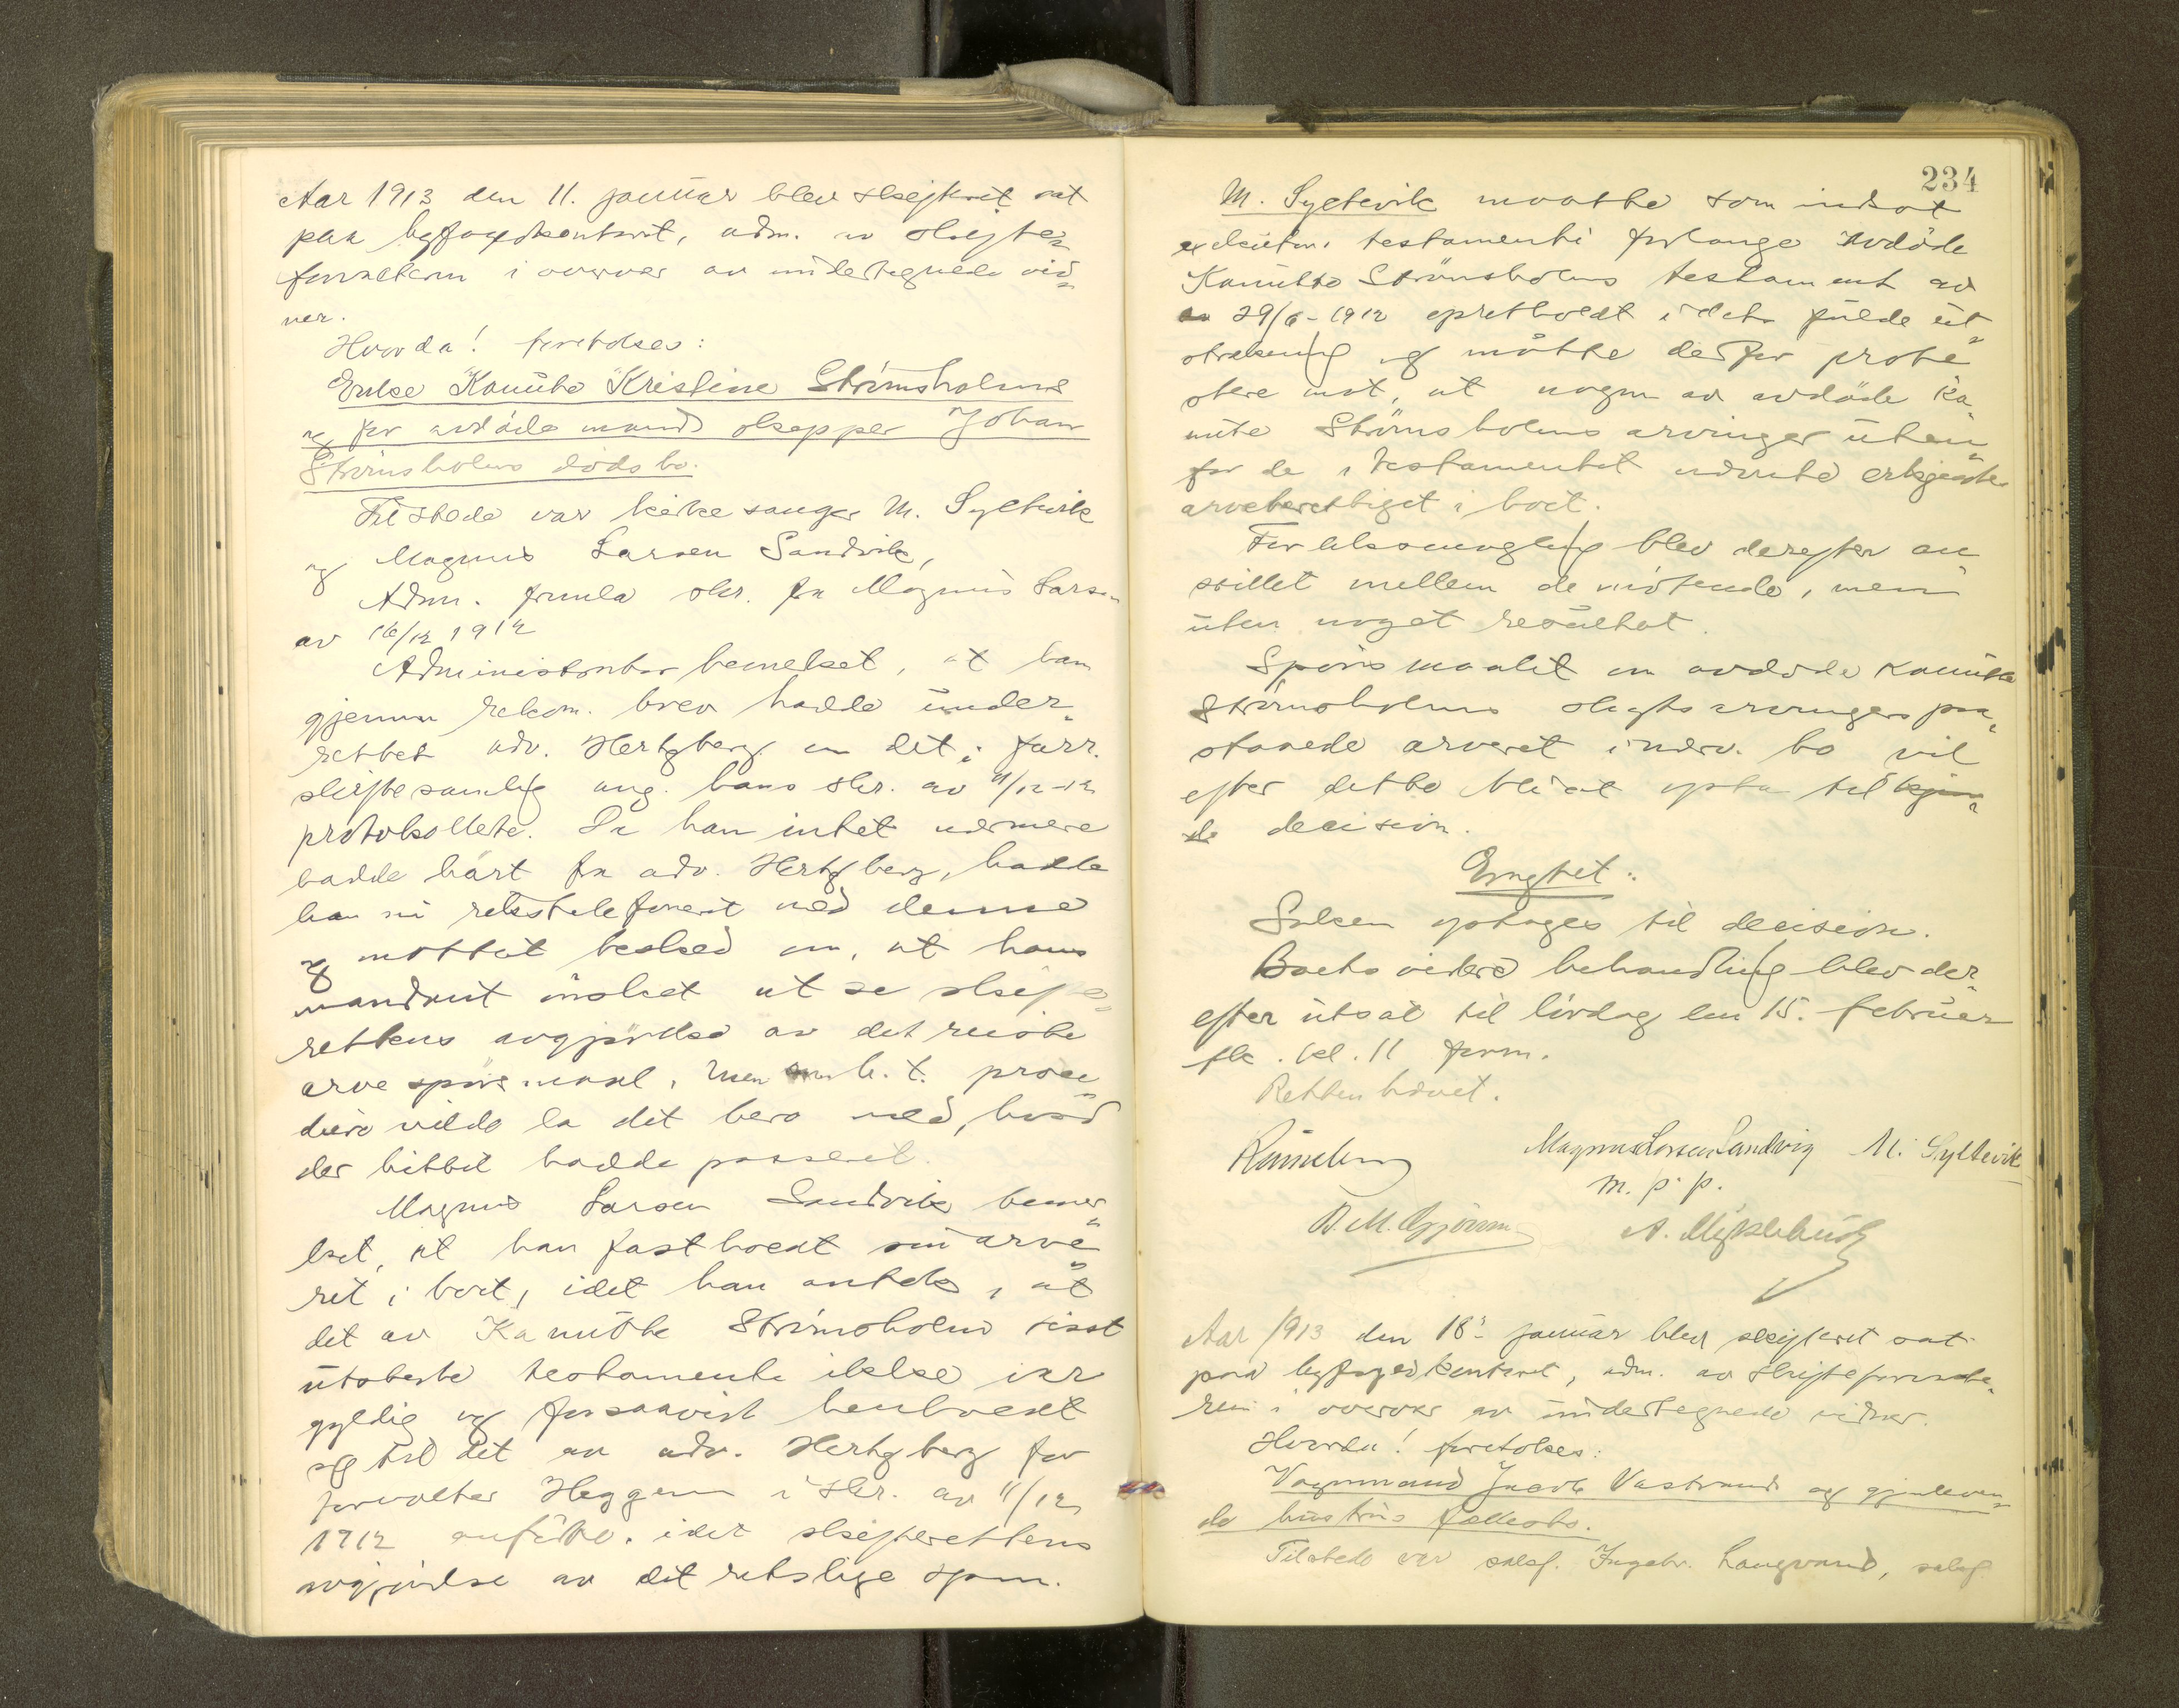 Aar 1913 den 11. januar blev skifteret sat
paa byfogedkontoret, adm. av skifte=
forvalteren i overvær av undertegnede vid=
ner.
Hvorda! foretokes:
Enke Kanutte Kristine Strømsholms
og før avdøde mand skipper Johan
Strømsholms dødsbo.
Tilstede var kirkesanger M. Syltevik
og Magnus Larsen Sandvik,
Adm. fremla skr. fra Magnus Larsen
av 16/12 1912
Administrator bemerket, at han
gjennem rekom. brev hadde under=
rettet adv. Hertzberg om det i forr.
skiftesamling ang. hans skr. av 11/12-12
protokollerte. Da han intet nærmere
hadde hørt fra adv. Hertzberg, hadde
han nu rikstelefonert med denne
og mottat besked om, at hans
mandant ønsket at se skifte=
rettens avgjørelse av det reiste
arvespørsmaal, men m.h.t. proce=
dure vilde la det bero med, hvad
der hittil hadde passeret.
Magnus Larsen Sandvik bemer=
ket, at han fastholdt sin arve=
ret i boet, idet han antok, at
det av Kanutte Strømsholm sisst
utstedte testamente ikke var
gyldig og forsaavidt henholdt
sig til det av adv. Hertzberg for
forvalter Heggem i skr. av 11/12
1912 anførte, idet skifterettens
avgjørelse av det retslige spm.
234
M. Syltevik møtte som indsat
executor testamenti forlangte avdøde
Kanutte Strømsholms testament av
29/6-1912 opretholdt i dets fulde ut=
strekning og måtte derfor prote=
stere mot, at nogen av avdøde Ka=
nutte Strømsholms arvinger uten=
for de i testamentet nævnte erkjendes
arveberettiget i boet.
Forliksmegling blev derefter an=
stillet mellem de møtende, men
uten noget resultat.
Spørsmaalet om avdøde Kanutte
Strømsholms slegtsarvingers paa=
staaede arveret i nærv. bo vil
efter dette bli at opta til
decision.
Eragtet:
Saken optages til decision.
Boets videre behandling blev der=
efter utsat til lørdag den 15. februar
fk. kl. 11 form.
Retten hævet.
Magnus Larsen Sandvig M. Syltevik
m. p. p.
Aar 1913 den 18. januar blev skifteret sat
paa byfogedkontoret, adm. av skifteforvalte=
ren i overvær av undertegnede vidner.
Hvorda! foretokes:
Vognmand Jacob Vastrands og gjenleven=
de hustrus fællesbo.
Tilstede var saksf. Ingebr. Langvand, saksf.